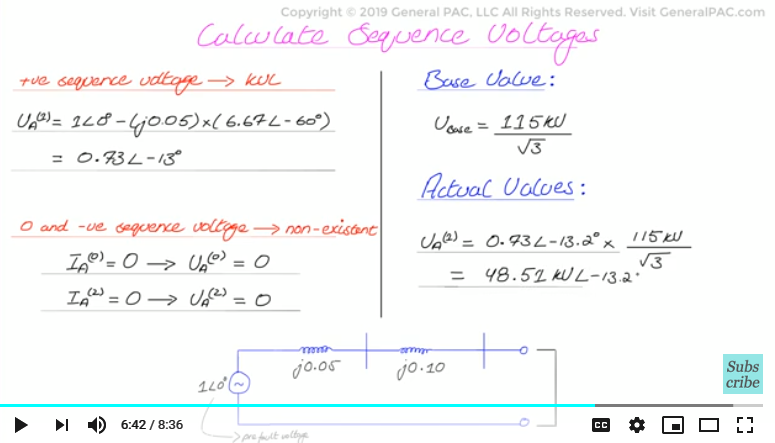 Copyright © 2019 General PAC, LLC All Rights Reserved. Visit GeneralPAC.com
Calculate Sequence Voltages
+ve sequence voltage → KVL
U_A^(2) = 1∠0° - (j0.05) × (6.67∠-60°)
= 0.73∠-13°
0 and -ve sequence voltage → non-existent
I_A^(0) = 0 → U_A^(0) = 0
I_A^(2) = 0 → U_A^(2) = 0
Base Value:
U_Base = 115kV / √3
Actual Values:
U_A^(2) = 0.73∠-13.2° × 115kV / √3
= 48.51 kV∠-13.2°
j0.05
j0.10
1∠0°
~
prefault voltage
Subs
cribe
6:42 / 8:36
CC